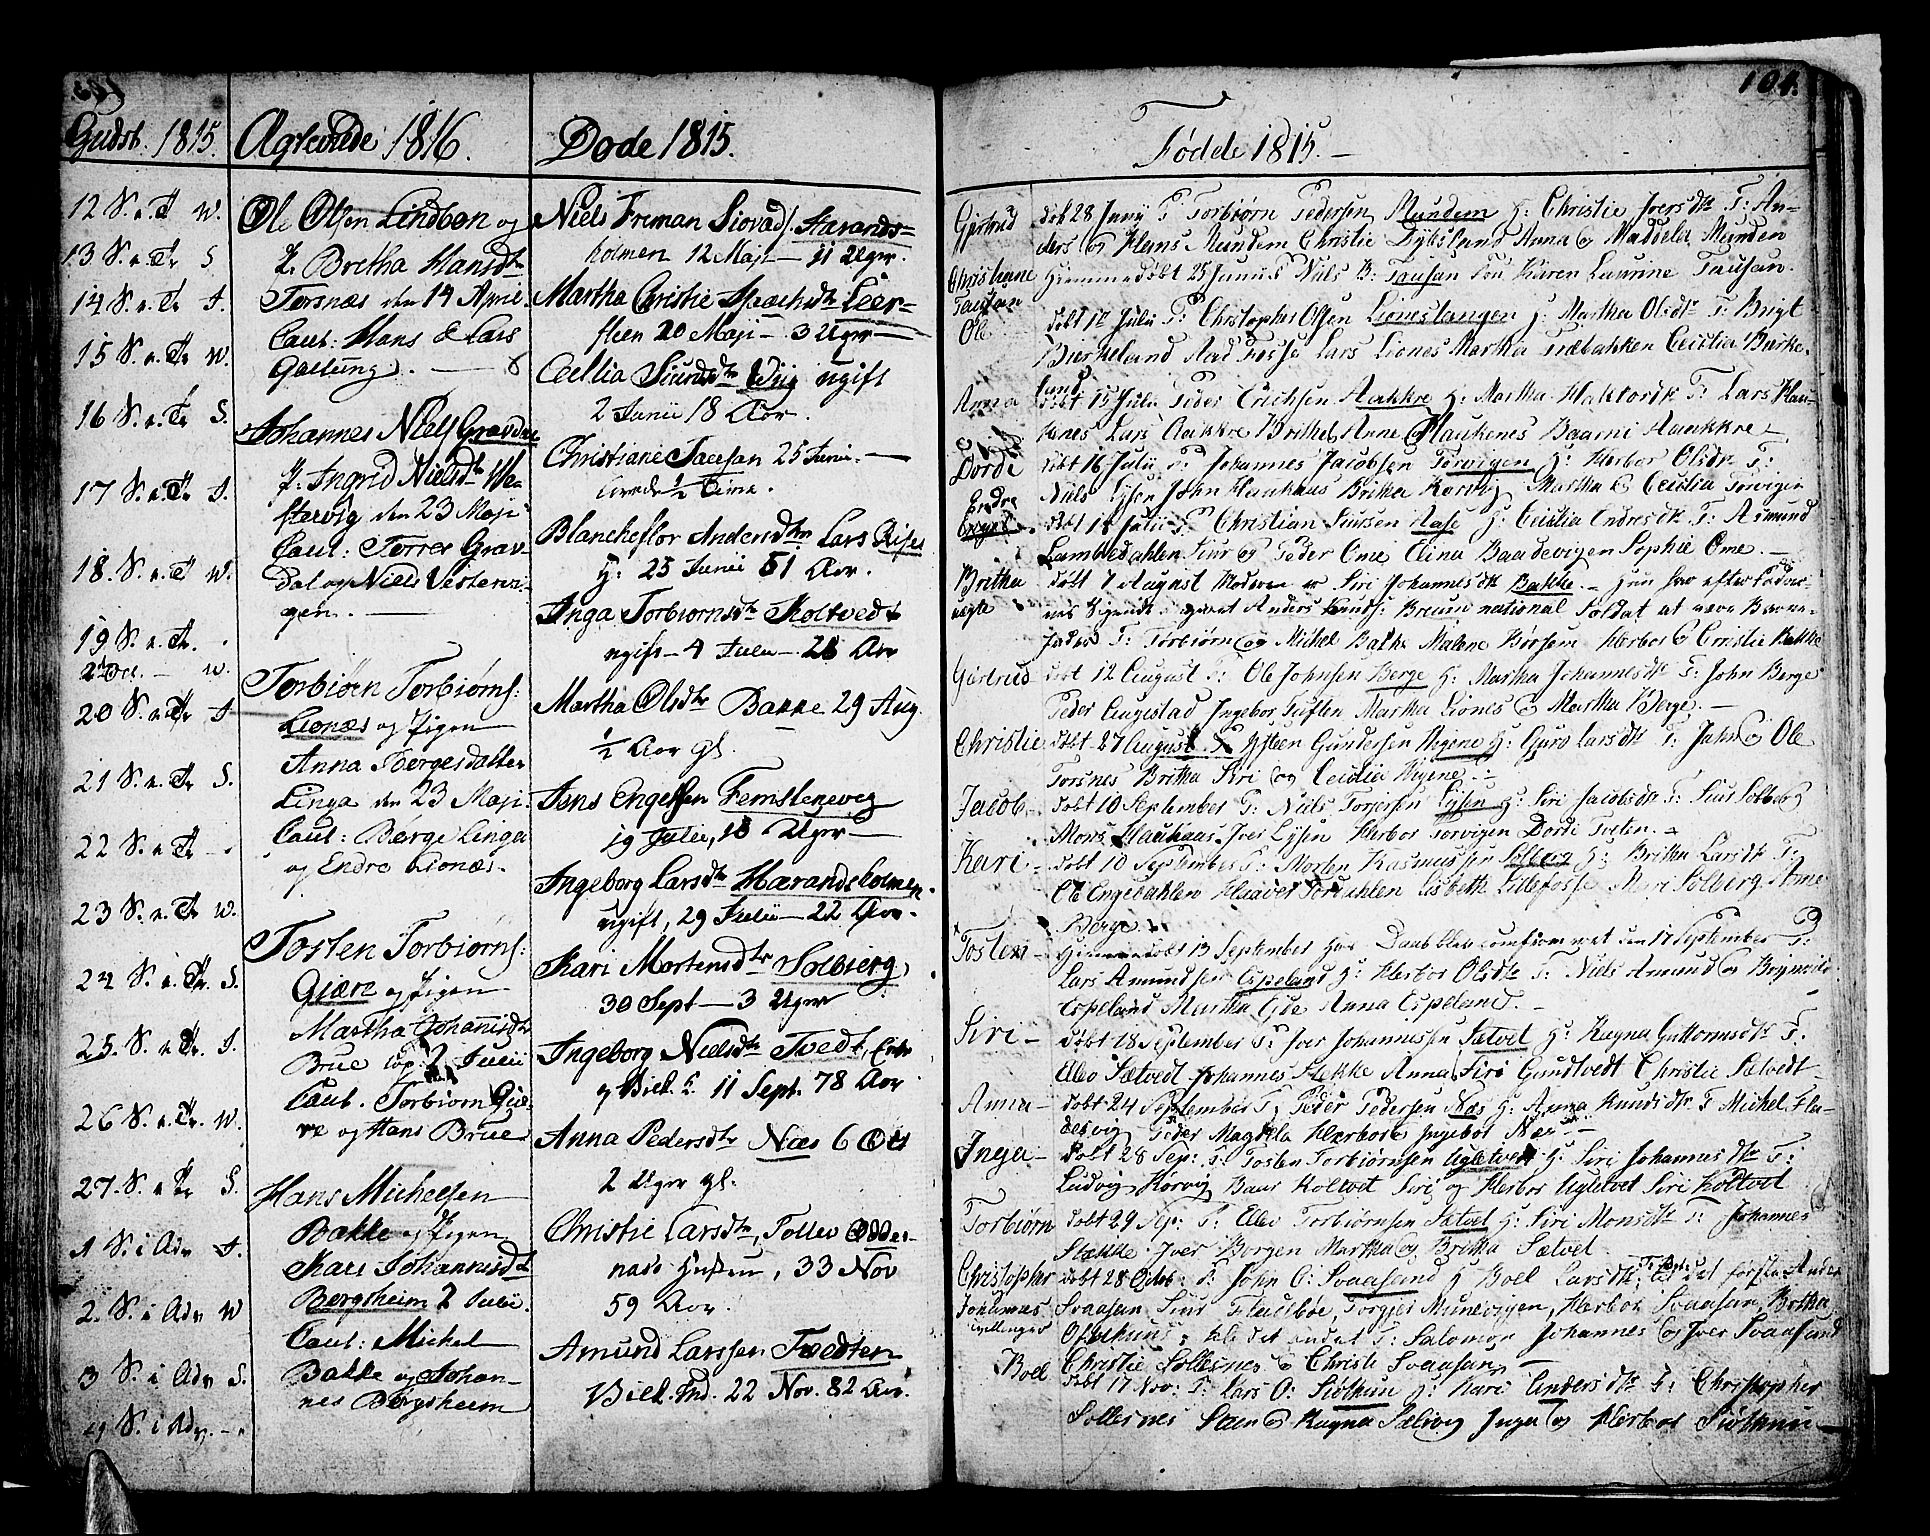 104.
Gudst. 1815.
12 S. e. Tr. W.
13 S. e. Tr. S
14 S. e. Tr. J.
15 S. e. Tr. W.
16 S. e. Tr. S.
17 S. e. Tr. J.
18. S. e. Tr. W.
19 S. e. Tr.
W.
20 S. e. Tr. J
21 S. e. Tr. S.
22 S. e. Tr.
23 S. e. Tr. W.
24 S. e. Tr. S.
25. S. e. Tr. J.
26 S. e. Tr. W.
27. S. e. Tr. S.
1 S. i Adv J.
2. S. i Adv W
3 S. i Adv S.
4 S. i Adv.
Ægteviede 1816.
Ole Olsen Lindbøn og
P. Bretha Hansdtr
Torsnæs den 14 April
Caut: Hans & Lars
Gaetung.
Johannes Niels Gravdae
P. Ingrid Nielsdtr We-
stervig den 23 Maji
Caut: Torrer Grav-
dal og Niels Vestervi-
gen.
Torbiøen Torbiørns:
Lionæs og Pigen
Anna Børgesdatter
Linga den 23 Maji
Caut: Børge Linga
og Endre Lionæs.
Tosten Torbiørns:
Giære og Pigen
Martha Johannisdtr
Brue cop. 2 Julii
Caut. Torbiørn Giæ-
re og Hans Brue
Hans Michelsen
Bakke og Pigen
Kari Johannisdtr
Bergsheim 2 Julii.
Caut: Michel
Bakke og Johan-
nes Bergsheim
Døde 1815.
Niels Friman Siovad Harands-
holmen 12 Maji — 11 Uger.
Martha Christie Leer-
steen 20 Maji — 3 Uger
Cecilia Siursdtr Wiig ugift
2 Junii 18 Aar.
Christiane Tausan 25 Juni
levede ½ Time.
Blancheflor Andersdtr Lars Rises
H: 25 Junii 51 Aar.
Inga Torbiørnsdtr Koltvedt
ugift — 4 Julii — 28 Aar
Martha Olsdtr Bakke 29 Aug.
½ Aar gl.
Jens Engelsen Femstenevig
19 Julii, 18 Uger
Ingeborg Larsdtr Harandsholmen.
ugift, 29 Julii — 22 Aar.
Kari Mortensdtr Solbierg
30 Sept — 3 Uger
Ingeborg Nielsdtr Tvedt, Enke
11 Sept. 78 Aar
Anna Pedersdtr Næs 6 Oct
2 Uger gl.
Christie Larsdtr, Tollev Odder-
næss Hustru, 33 Nov
59 Aar.
Amund Larssen Tvedten
22 Nov. 82 Aar.
Fødde 1815. —
Giertrud døbt 28 Junij F Torbiørn Pedersen Mundem H: Christie Iversdtr F: An-
ders og Hans Mundem Christie Dybsland Anna og Maddela Munden
Christiane Hiemmedøbt 25 Junius Niels B: Tausan Fru Karen Laurine Tausan.
Tausan
Ole døbt Julii F: Christopher Olsen Lioneslangen H: Martha Olsdtr F: Brigt
Bierkeland Aad Fosse Lars Liones Martha Træbakken Cecilia Birke-
land
Anna døbt 15 Julii Peder Erichsen Aakkre H: Martha F: Lars Hau-
kenes Lars Aakkre Brithe, Anne Haukenes Baarni Aakkre
Dorde døbt 16 Julii F: Johannes Jacobsen Torvigen H: Herbor Olsdtr F:
Niels Lysen John Haukaas Britha Korvig Martha og Cecilia Torvigen
Endre døbt Julii F: Christian Siursen Aase H: Cecilia Endresdtr F: Asmund
Siur og Peder Ome Elina Baadevigen Sophie Ome. —
Britha døbt 7 August Moderen er Siri Johannesdtr Bakke.
uægte Anders Knuds: Breum national Soldat at være Barne-
fader F: Torbiørn og Michel Bakke Malene Børsem Herbor & Christie Bakke
Giertrud døbt 12 August F: Ole Johnsen Berge H: Martha Johannesdtr F: John Berge
Peder Augestad Ingebor Tuften Martha Liones & Martha Berge. —
Christie døbt 27 August F Østen Gundersen H: Guro Larsdtr F: John og Ole
Torsnes Britha Siri og Cecilia
Jacob døbt 10 September F: Niels Torgersen Lysen H: Siri Jacobsdtr F: Siur Solberg
Mons Haukaas Iver Lysen Herbor Torvigen Dordi Tveten. —
Kari døbt 10 September F: Morten Rasmussen Solberg H: Britha Larsdtr F:
Ole Engedahlen Haaver Lisbette Lillefosse Mari Solberg Anne
Berge
Tosten Hiemmedøbt 13 September hos Daab blev confirmeret den 17 September F:
Lars Amundsen Espeland H: Herbor Olsdtr F: Niels Amund og Brynild
Espeland Martha Eide Anna Espeland. —
Siri døbt 18 September F: Iver Johannessen Sætvet H: Ragna Guttormsdtr F:
Elev Sætvedt Johannes Stekke Anna, Siri Gundtvedt Christie Sætvedt
Anna døbt 24 September F: Peder Pedersen Næs H: Anna Knudsdtr F Michel Fla-
devig Peder Magdela Herbore Ingebor Næs
Inga døbt 28 Sep: F: Tosten Torbiørnsen Ugletvedt H: Siri Johannesdtr F:
Ludvig Korvig Baar Koltvet Siri og Herbor Ugletvet Siri Koltvet
Torbiørn døbt 29 Sep: F: Elev Torbiørnsen Sætvet H: Siri Monsdtr F: Johannes
Stække Iver Borgen Martha og Britha Sætvet
Christopher døbt 28 Octob: F: John O: Svaasand H Boel Larsdtr F: til det første Ander
Johannes Svaasan, Siur Flaatbøe, Torgier Munevigen, Herbor Svaasan, Britha
Tvillinger til det andet F: Salomon Johannes og Iver Svaasand
Christie Sollesnes & Christi Svaasan
Boel døbt 17 Nov: F: Lars O: Siøthun H: Kari Andersdtr F: Christopher
Sollesnes Ragna Sælvig Inger og Herbor Siøthun